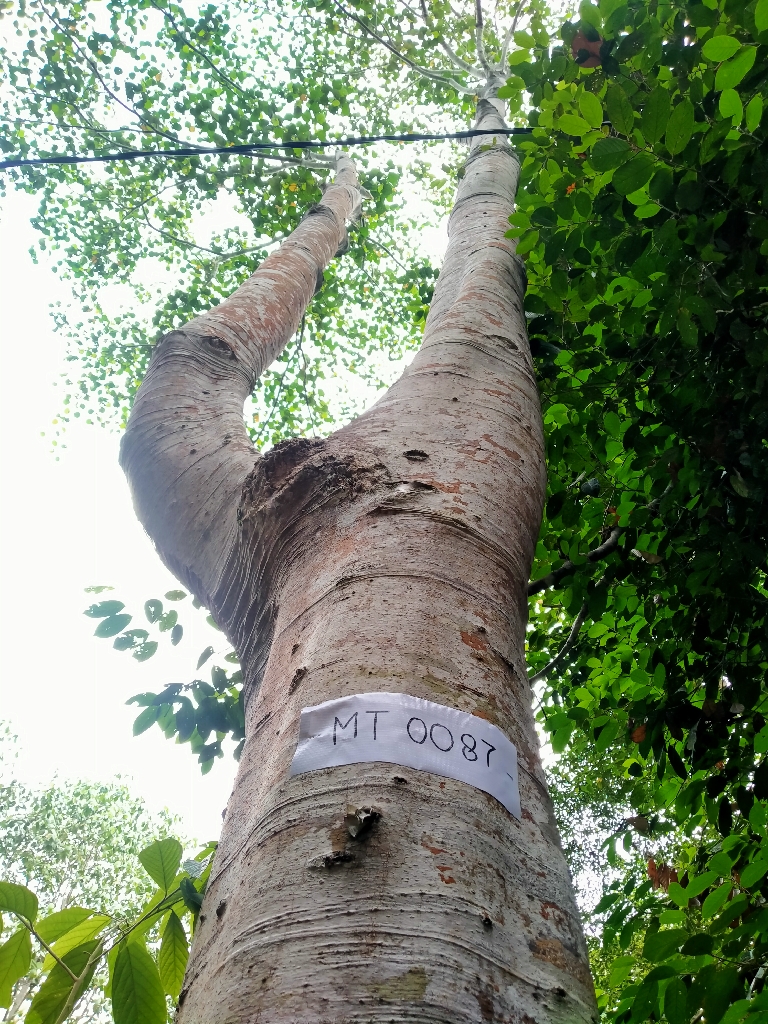 MT 0087